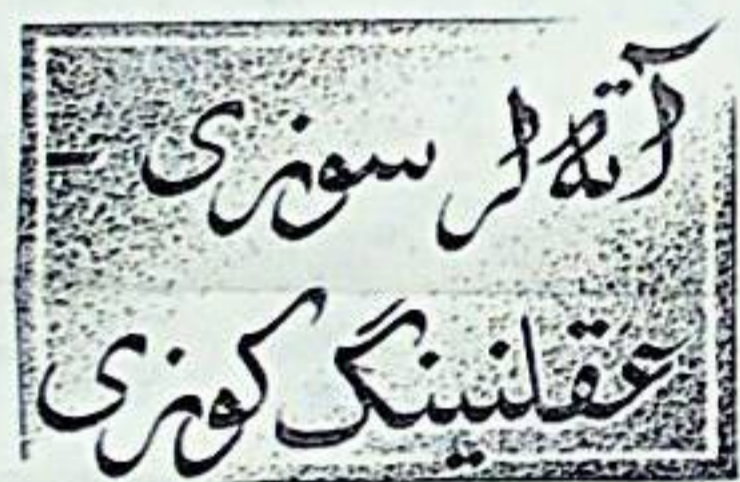 آته لر سوزی -
عقلنینگ کوزی